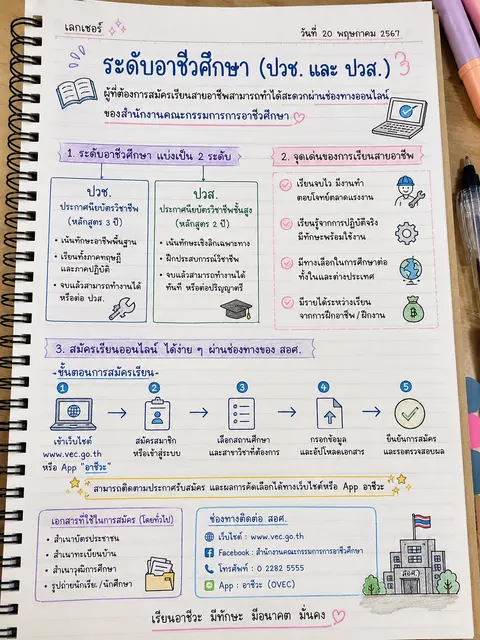 เลกเชอร์
วันที่ 20 พฤษภาคม 2567
ระดับอาชีวศึกษา (ปวช. และ ปวส.)
ผู้ที่ต้องการสมัครเรียนสายอาชีพสามารถทำได้สะดวกผ่านช่องทางออนไลน์
ของสำนักงานคณะกรรมการการอาชีวศึกษา
1. ระดับอาชีวศึกษา แบ่งเป็น 2 ระดับ
ปวช.
ประกาศนียบัตรวิชาชีพ
(หลักสูตร 3 ปี)
• เน้นทักษะอาชีพพื้นฐาน
• เรียนทั้งภาคทฤษฎี
และภาคปฏิบัติ
• จบแล้วสามารถทำงานได้
หรือต่อ ปวส.
ปวส.
ประกาศนียบัตรวิชาชีพชั้นสูง
(หลักสูตร 2 ปี)
• เน้นทักษะเชิงลึกเฉพาะทาง
• ฝึกประสบการณ์วิชาชีพ
• จบแล้วสามารถทำงานได้
ทันที หรือต่อปริญญาตรี
2. จุดเด่นของการเรียนสายอาชีพ
เรียนจบไว มีงานทำ
ตอบโจทย์ตลาดแรงงาน
เรียนรู้จากการปฏิบัติจริง
มีทักษะพร้อมใช้งาน
มีทางเลือกในการศึกษาต่อ
ทั้งในและต่างประเทศ
มีรายได้ระหว่างเรียน
จากการฝึกอาชีพ / ฝึกงาน
฿
3. สมัครเรียนออนไลน์ ได้ง่าย ๆ ผ่านช่องทางของ สอศ.
-ขั้นตอนการสมัครเรียน-
1
2
3
4
5
เข้าเว็บไซต์
www.vec.go.th
หรือ App "อาชีวะ"
สมัครสมาชิก
หรือเข้าสู่ระบบ
เลือกสถานศึกษา
และสาขาวิชาที่ต้องการ
กรอกข้อมูล
และอัปโหลดเอกสาร
ยืนยันการสมัคร
และรอตรวจสอบผล
สามารถติดตามประกาศรับสมัคร และผลการคัดเลือกได้ทางเว็บไซต์หรือ App อาชีวะ
เอกสารที่ใช้ในการสมัคร (โดยทั่วไป)
• สำเนาบัตรประชาชน
• สำเนาทะเบียนบ้าน
• สำเนาวุฒิการศึกษา
• รูปถ่ายนักเรียน / นักศึกษา
ช่องทางติดต่อ สอศ.
เว็บไซต์ : www.vec.go.th
Facebook : สำนักงานคณะกรรมการการอาชีวศึกษา
โทรศัพท์ : 0 2282 5555
App : อาชีวะ (OVEC)
สอศ.
เรียนอาชีวะ มีทักษะ มีอนาคต มั่นคง